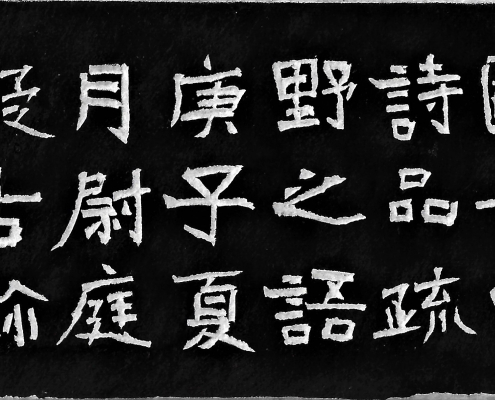 詩品疏
野之語
庚子夏
月尉庭